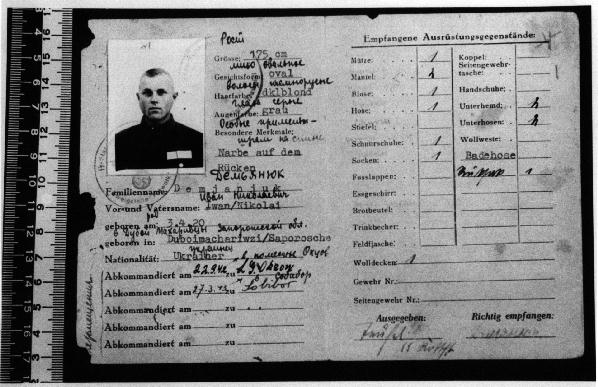 Рост
Grösse: 175 cm
лицо овальное
Gesichtsform: oval
Haarfarbe: dklblond
глаза серые
Augenfarbe: grau
Особые приметы-
Besondere Merkmale:
шрам на спине
Narbe auf dem
Rücken
Демьянюк
Familienname: Demjanjuk
Иван Николаевич
Vor-und Vatersname: Iwan/Nikolai
geboren am: 3.4.20
geboren in: Duboimachariwzi/Saporosche
украинец
Nationalität: Ukrainer
Abkommandiert am 22.9.42 zu L.G. Okzow
Собибор
Abkommandiert am 27.3.43 zu Sobibor
Abkommandiert am zu
Abkommandiert am zu
Abkommandiert am zu
Empfangene Ausrüstungsgegenstände:
Mütze: 1
Mantel:
Bluse: 1
Hose: 1
Stiefel:
Schnürschuhe: 1
Socken: 1
Fusslappen:
Essgeschirr:
Brotbeutel:
Trinkbecher:
Feldflasche:
Wolldecken: 1
Gewehr Nr.:
Seitengewehr Nr.:
Koppel:
Seitengewehr-
tasche:
Handschuhe:
Unterhemd: 2
Unterhosen: 2
Wollweste:
Badehose
1
Ausgegeben:
Richtig empfangen: